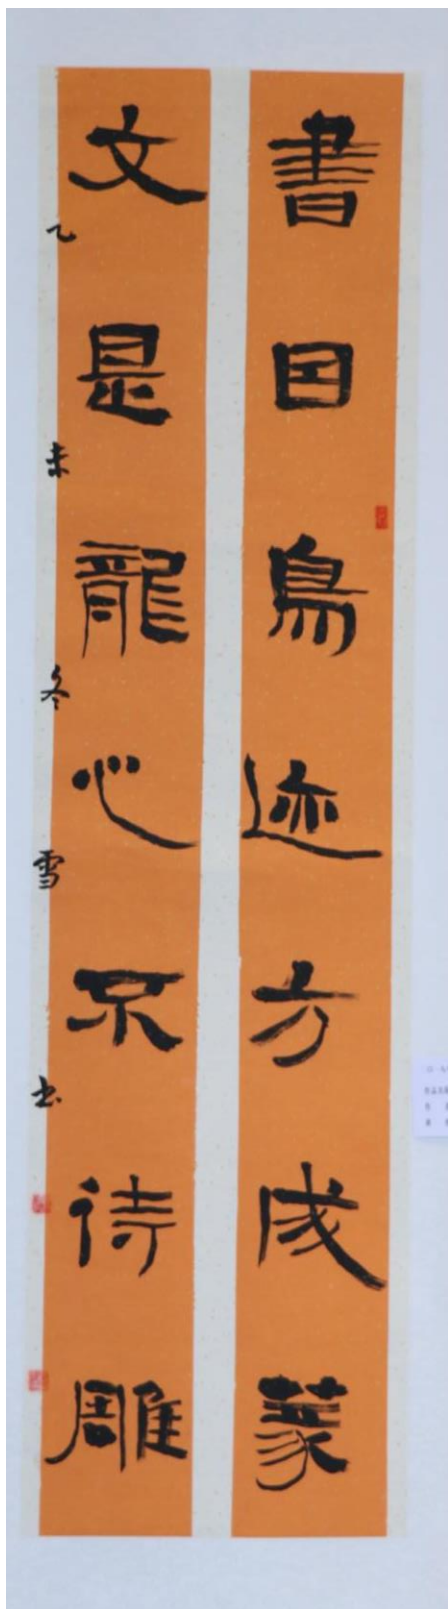 書因鳥迹方成篆
文是龍心不待雕
乙未冬雪书